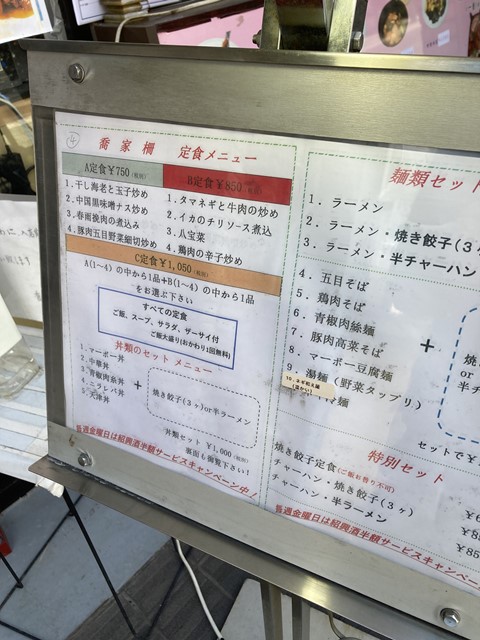 ④
喬家柵 定食メニュー
A定食¥750(税別)
1. 干し海老と玉子炒め
2. 中国黒味噌ナス炒め
3. 春雨挽肉の煮込み
4. 豚肉五目野菜細切炒め
B定食¥850(税別)
1. タマネギと牛肉の炒め
2. イカのチリソース煮込
3. 八宝菜
4. 鶏肉の辛子炒め
C定食¥1,050(税別)
A(1~4)の中から1品+B(1~4)の中から1品
をお選び下さい
すべての定食
ご飯、スープ、サラダ、ザーサイ付
ご飯大盛り(おかわり1回無料)
丼類のセット メニュー
1. マーボー丼
2. 中華丼
3. 青椒肉糸丼
4. ニラレバ丼
5. 天津丼
+
焼き餃子(3ヶ)or半ラーメン
丼類セット ¥1,000(税別)
裏面も御覧下さい!
毎週金曜日は紹興酒半額サービスキャンペーン中!
麺類セット
1. ラーメン
2. ラーメン・焼き餃子(3
3. ラーメン・半チャーハン
4. 五目そば
5. 鶏肉そば
6. 青椒肉絲麺
7. 豚肉高菜そば
8. マーボー豆腐麺
9. 湯麺 (野菜タップリ)
10. ネギ和え麺
(温かい)
麺
+
焼
or
半チ
セットで¥
特別セット
焼き餃子定食(ご飯お替り不可)
チャーハン・焼き餃子(3ヶ)
チャーハン・半ラーメン
¥6
¥8
¥85
毎週金曜日は紹興酒半額サービスキャンペー